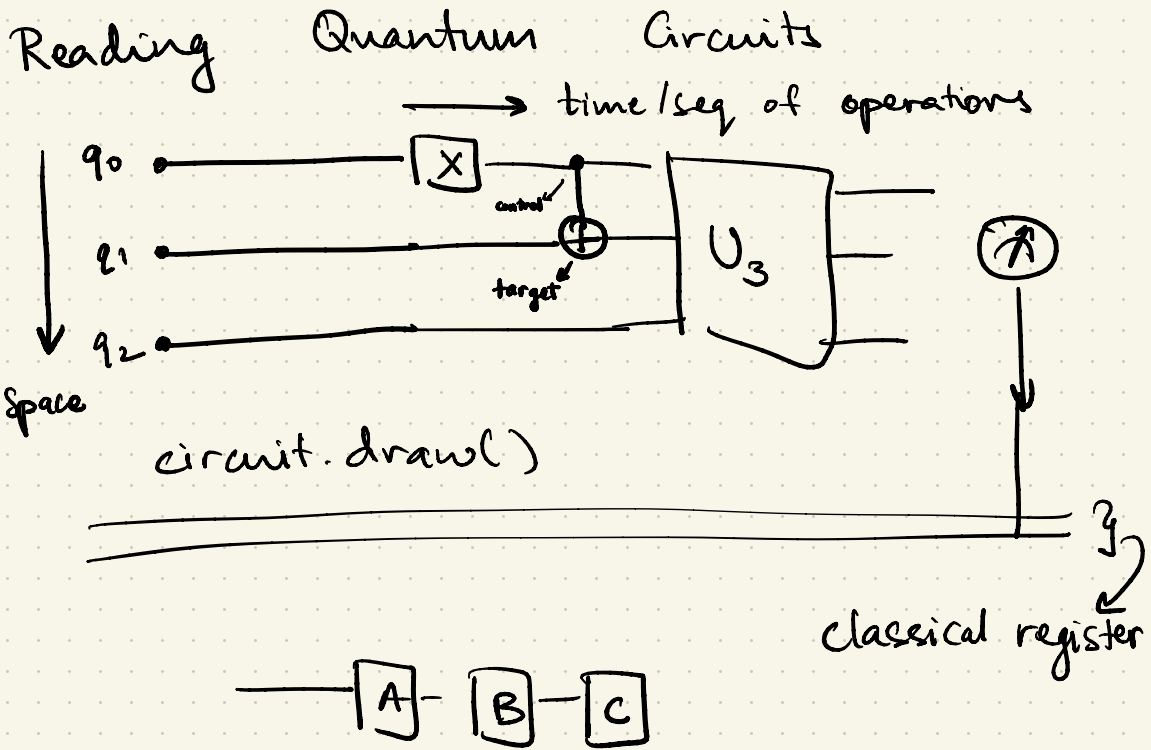 Reading Quantum Circuits
time/seq of operations
q0
X
control
q1
target
U3
q2
Space
circuit.draw()
}
classical register
A
B
C